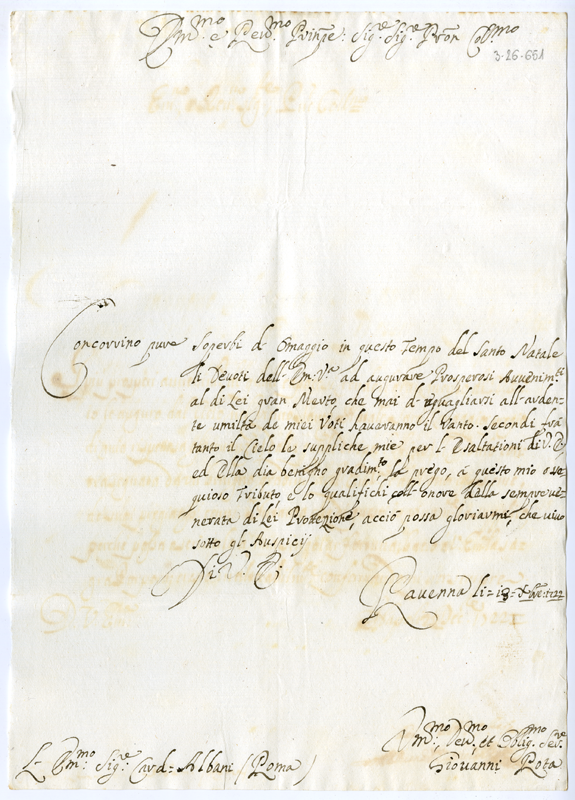 Em.mo e Rev.mo Prinpe: Sig.re Sig.re Pron Col.mo
3-26-651
Concorrino pure Soperbi d' Omaggio in questo Tempo del Santo Natale
li Devoti dell' Em. V.a ad augurare Prosperosi Avvenim.ti
al di Lei gran Merto, che mai d' uguagliarsi all' arden-
te umiltà de miei Voti haveranno il Vanto. Secondi frà
tanto il Cielo le suppliche mie per l' Esaltationi di V. E.
ed Ella dia benigno gradim.to la prego, à questo mio osse
quioso Tributo e lo qualifichi coll' onore della sempre ve-
nerata di Lei Protezione, acciò possa gloriarmi, che vivo
sotto gl' Auspicij
Di V. E.
Ravenna li = 13 = Xbre: 1722
L' Em.mo Sig.re Card= Albani (Roma)
Um.mo Dev.mo et Oblig.mo Ser.re
Giovanni Rota